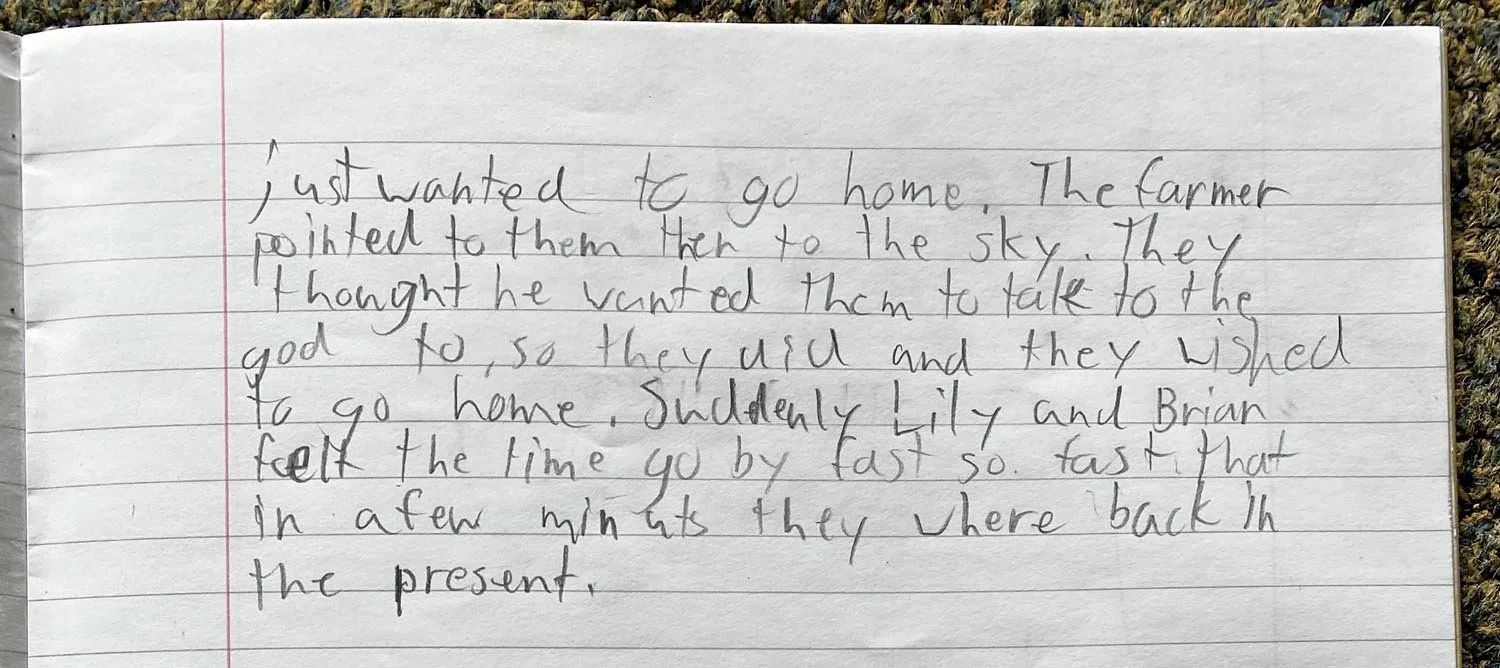 just wanted to go home. The farmer
pointed to them then to the sky. They
thought he wanted them to talk to the
god to, so they did and they wished
to go home. Suddenly Lily and Brian
felt the time go by fast so fast that
in a few minuts they where back in
the present.